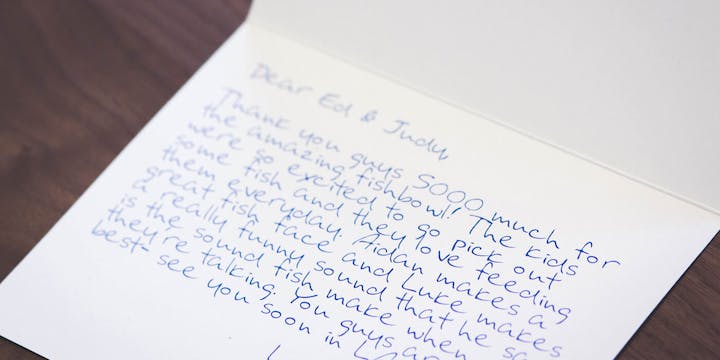 Dear Ed & Judy,
Thank you guys SOOO much for
the amazing fishbowl! The kids
were so excited to go pick out
some fish and they love feeding
them everyday. Aidan makes a
great fish face and Luke makes
a really funny sound that he sa
is the sound fish make when
they're talking. You guys ar
best- see you soon in